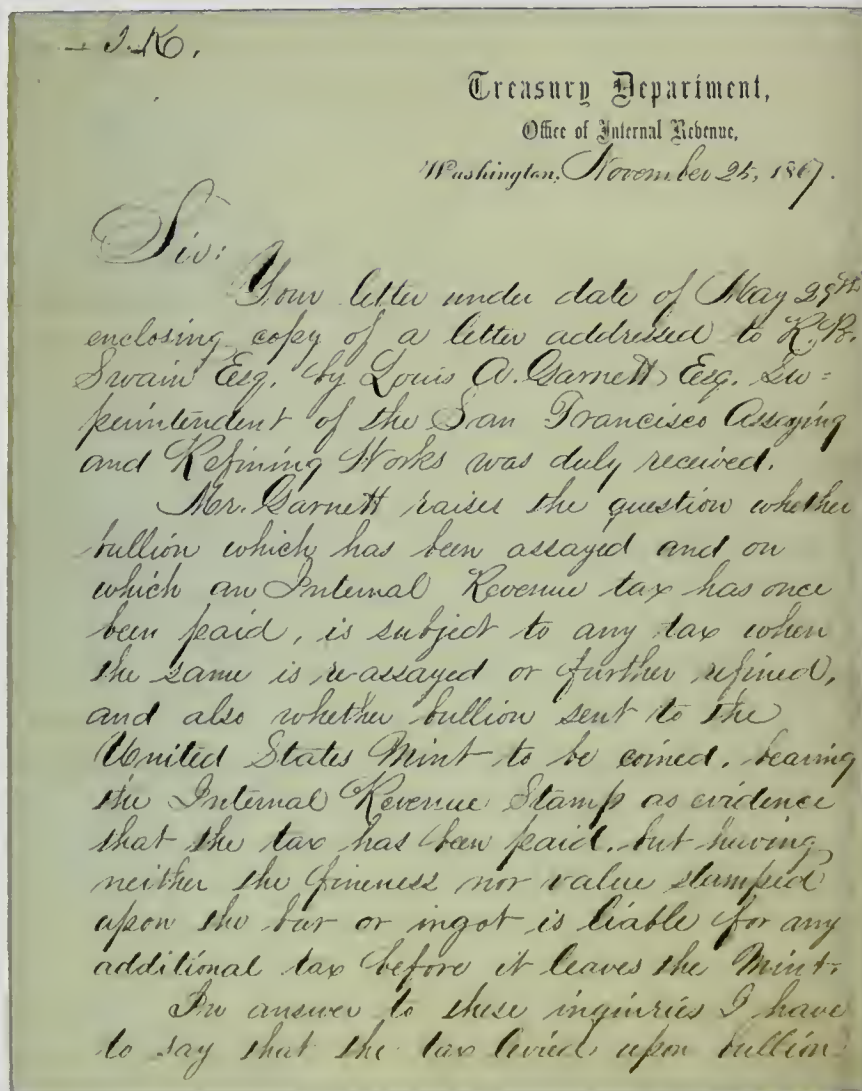 I.K.
Treasury Department,
Office of Internal Revenue,
Washington, November 25, 1867.
Sir:
Your letter under date of May 29th
enclosing copy of a letter addressed to R.B.
Swain Esq. by Louis A. Garnett Esq. Su=
perintendent of the San Francisco Assaying
and Refining Works was duly received.
Mr. Garnett raises the question whether
bullion which has been assayed and on
which an Internal Revenue tax has once
been paid, is subject to any tax when
the same is re-assayed or further refined,
and also whether bullion sent to the
United States Mint to be coined, bearing
the Internal Revenue Stamp as evidence
that the tax has been paid, but having
neither the fineness nor value stamped
upon the bar or ingot is liable for any
additional tax before it leaves the Mint.
In answer to these inquiries I have
to say that the tax levied upon bullion